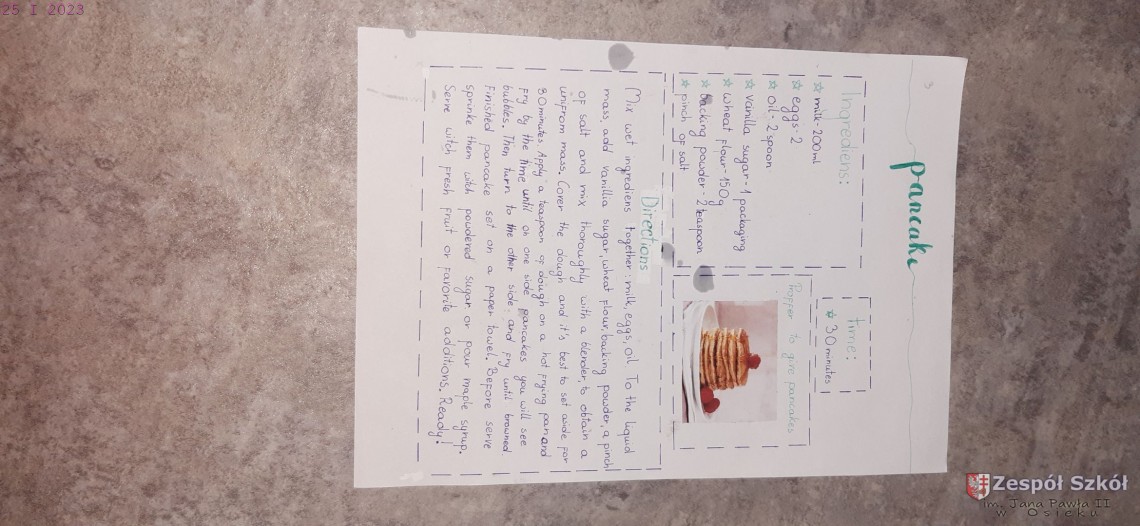 25 I 2023
pancake
Ingrediens:
☆ milk-200ml
☆ eggs-2
☆ oil-2 spoon
☆ vanilla sugar-1 packaging
☆ wheat flour-150g
☆ backing powder-2 teaspoon
☆ pinch of salt
time:
☆ 30 minutes
Propper to give pancakes
Directions
Mix wet ingrediens together: milk, eggs, oil To the liquid
mass, add vanillia sugar, wheat flour, backing powder, a pinch
of salt and mix thoroughly with a blender, to obtain a
unifrom mass. Cover the dough and it's best to set aside for
30 minutes Apply a teaspoon of dough on a hot frying pan and
fry by the time until on one side pancakes you will see
bubbles. Then turn to the other side: and fry until browned.
Finished pancake set on a paper towel. Before serve
sprinke them witch powdered sugar or pour maple syrup.
Serve witch fresh fruit or favorite additions. Ready!
Zespół Szkół
im. Jana Pawła II
w Osieku